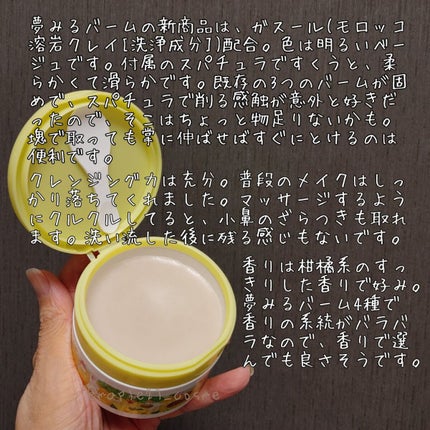 夢みるバームの新商品は、ガスール(モロッコ
溶岩クレイ[洗浄成分])配合。色は明るいベー
ジュです。付属のスパチュラですくうと、柔
らかくて滑らかです。既存の3つのバームが固
めで、スパチュラで削る感触が意外と好きだ
ったので、そこはちょっと物足りないかも。
塊で取っても常に伸ばせばすぐにとけるのは
便利です。
クレンジング力は充分。普段のメイクはしっ
かり落ちてくれました。マッサージするよう
にクルクルしてると、小鼻のざらつきも取れ
ます。洗い流した後に残る感じもないです。
香りは柑橘系のすっ
きりした香りで好み。
夢みるバーム4種で
香りの系統がバラバ
ラなので、香りで選
んでも良さそうです。